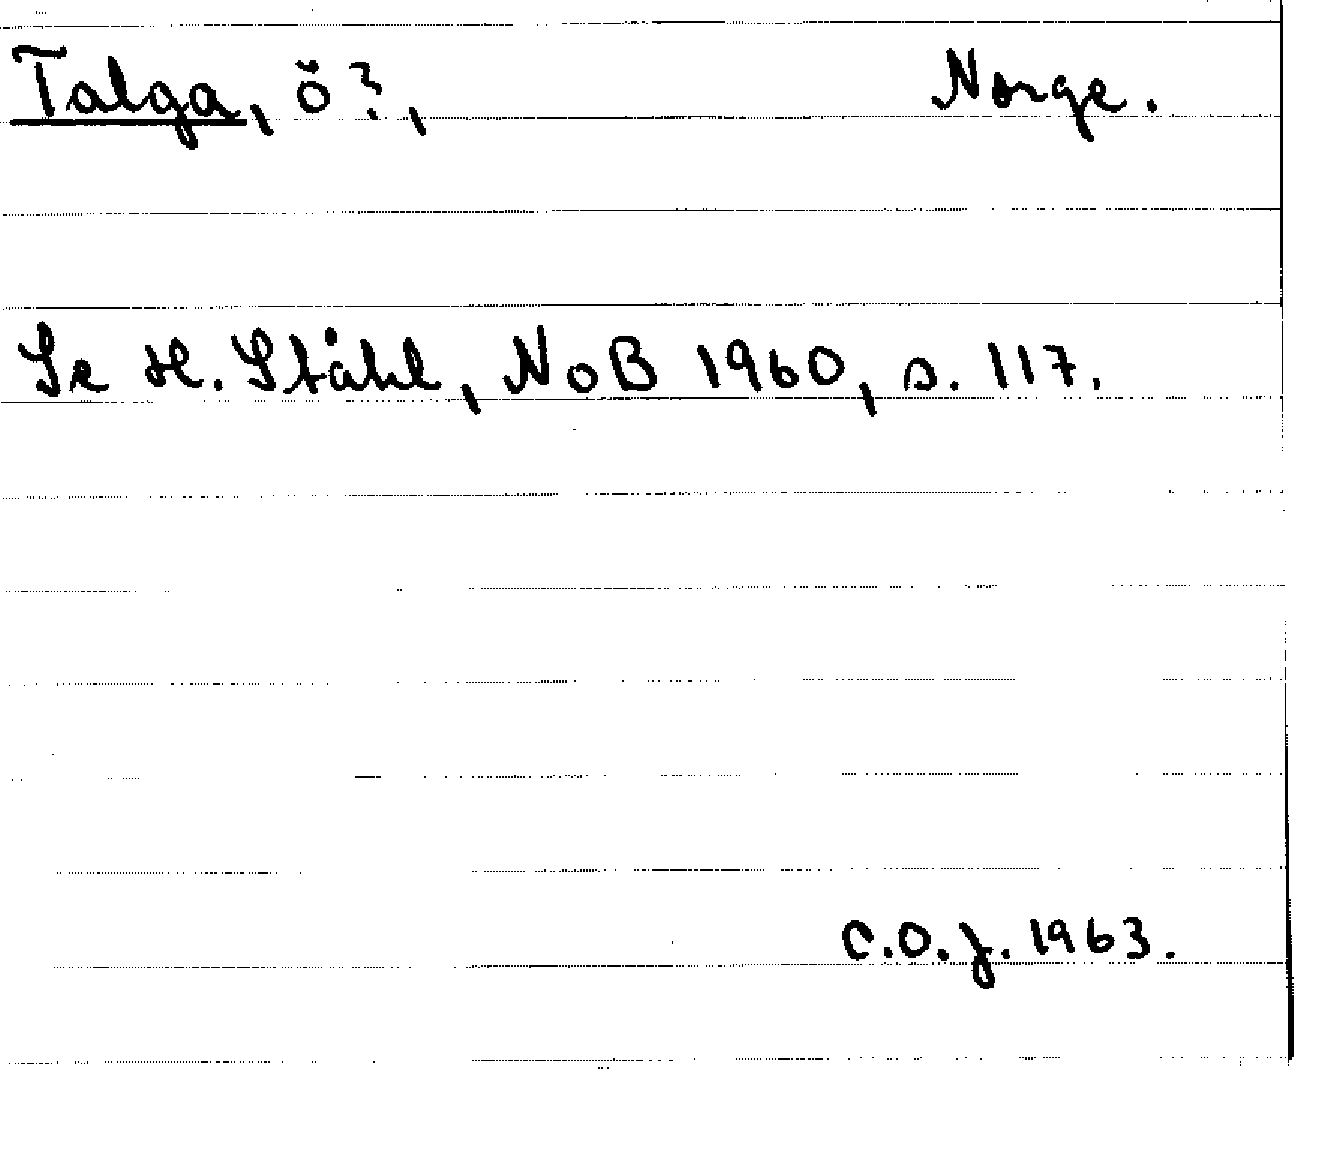 Talga, ö?, Norge.
Se H. Ståhl, NoB 1960, s. 117.
C.O.J. 1963.